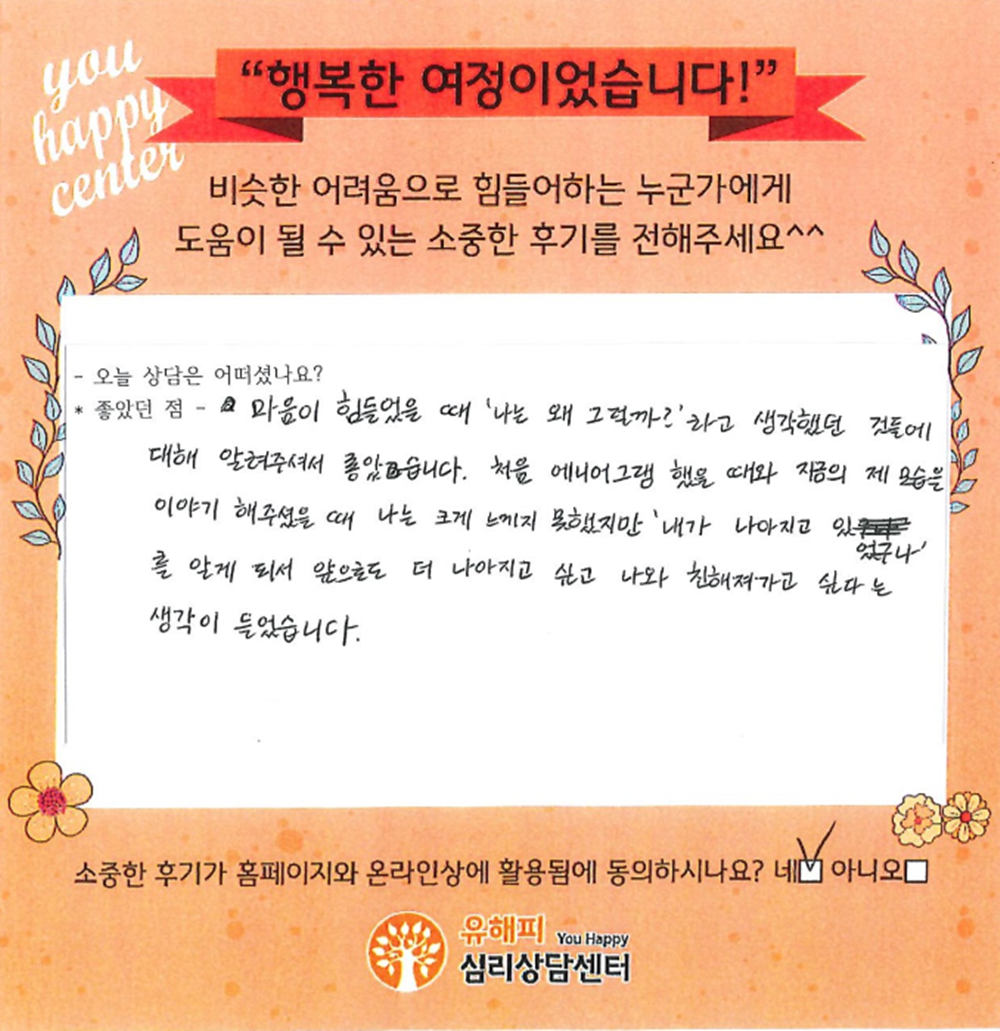 you
happy
center
“행복한 여정이었습니다!”
비슷한 어려움으로 힘들어하는 누군가에게
도움이 될 수 있는 소중한 후기를 전해주세요^^
- 오늘 상담은 어떠셨나요?
* 좋았던 점 - 마음이 힘들었을 때 '나는 왜 그럴까?'라고 생각했던 것들에
대해 알려주셔서 좋았습니다. 처음 에니어그램 했을 때와 지금의 제 모습을
이야기 해주셨을 때 나는 크게 느끼지 못했지만 '내가 나아지고 있
었구나'
를 알게 되서 앞으로도 더 나아지고 싶고 나와 친해져가고 싶다는
생각이 들었습니다.
소중한 후기가 홈페이지와 온라인상에 활용됨에 동의하시나요? 네☑ 아니오□
유해피 You Happy
심리상담센터